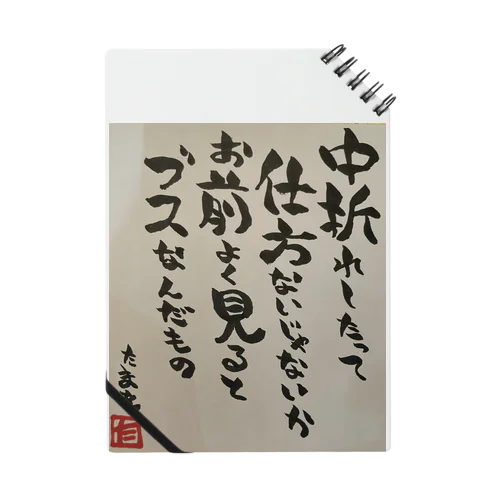 中折れしたって
仕方ないじゃないか
お前よく見ると
ブスなんだもの